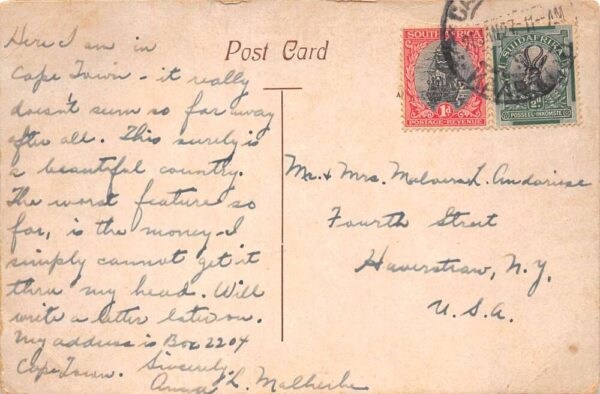 Post Card
Here I am in
Cape Town - it really
doesn't seem so far away
after all. This surely is
a beautiful country.
The worst feature so
far, is the money - I
simply cannot get it
thru my head. Will
write a letter later on.
My address is Box 2204
Cape Town. Sincerely,
Anna L. Malherbe
SOUTH AFRICA
1d
POSTAGE-REVENUE
SUIDAFRIKA
½d
POSSEEL-INKOMSTE
Mr. & Mrs. L.
Fourth Street
Haverstraw, N.Y.
U.S.A.